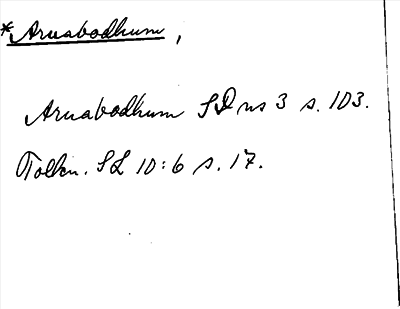 *Aruabodhum,
Aruabodhum SD ns 3 s. 103.
Tolkn. SL 10:6 s. 17.